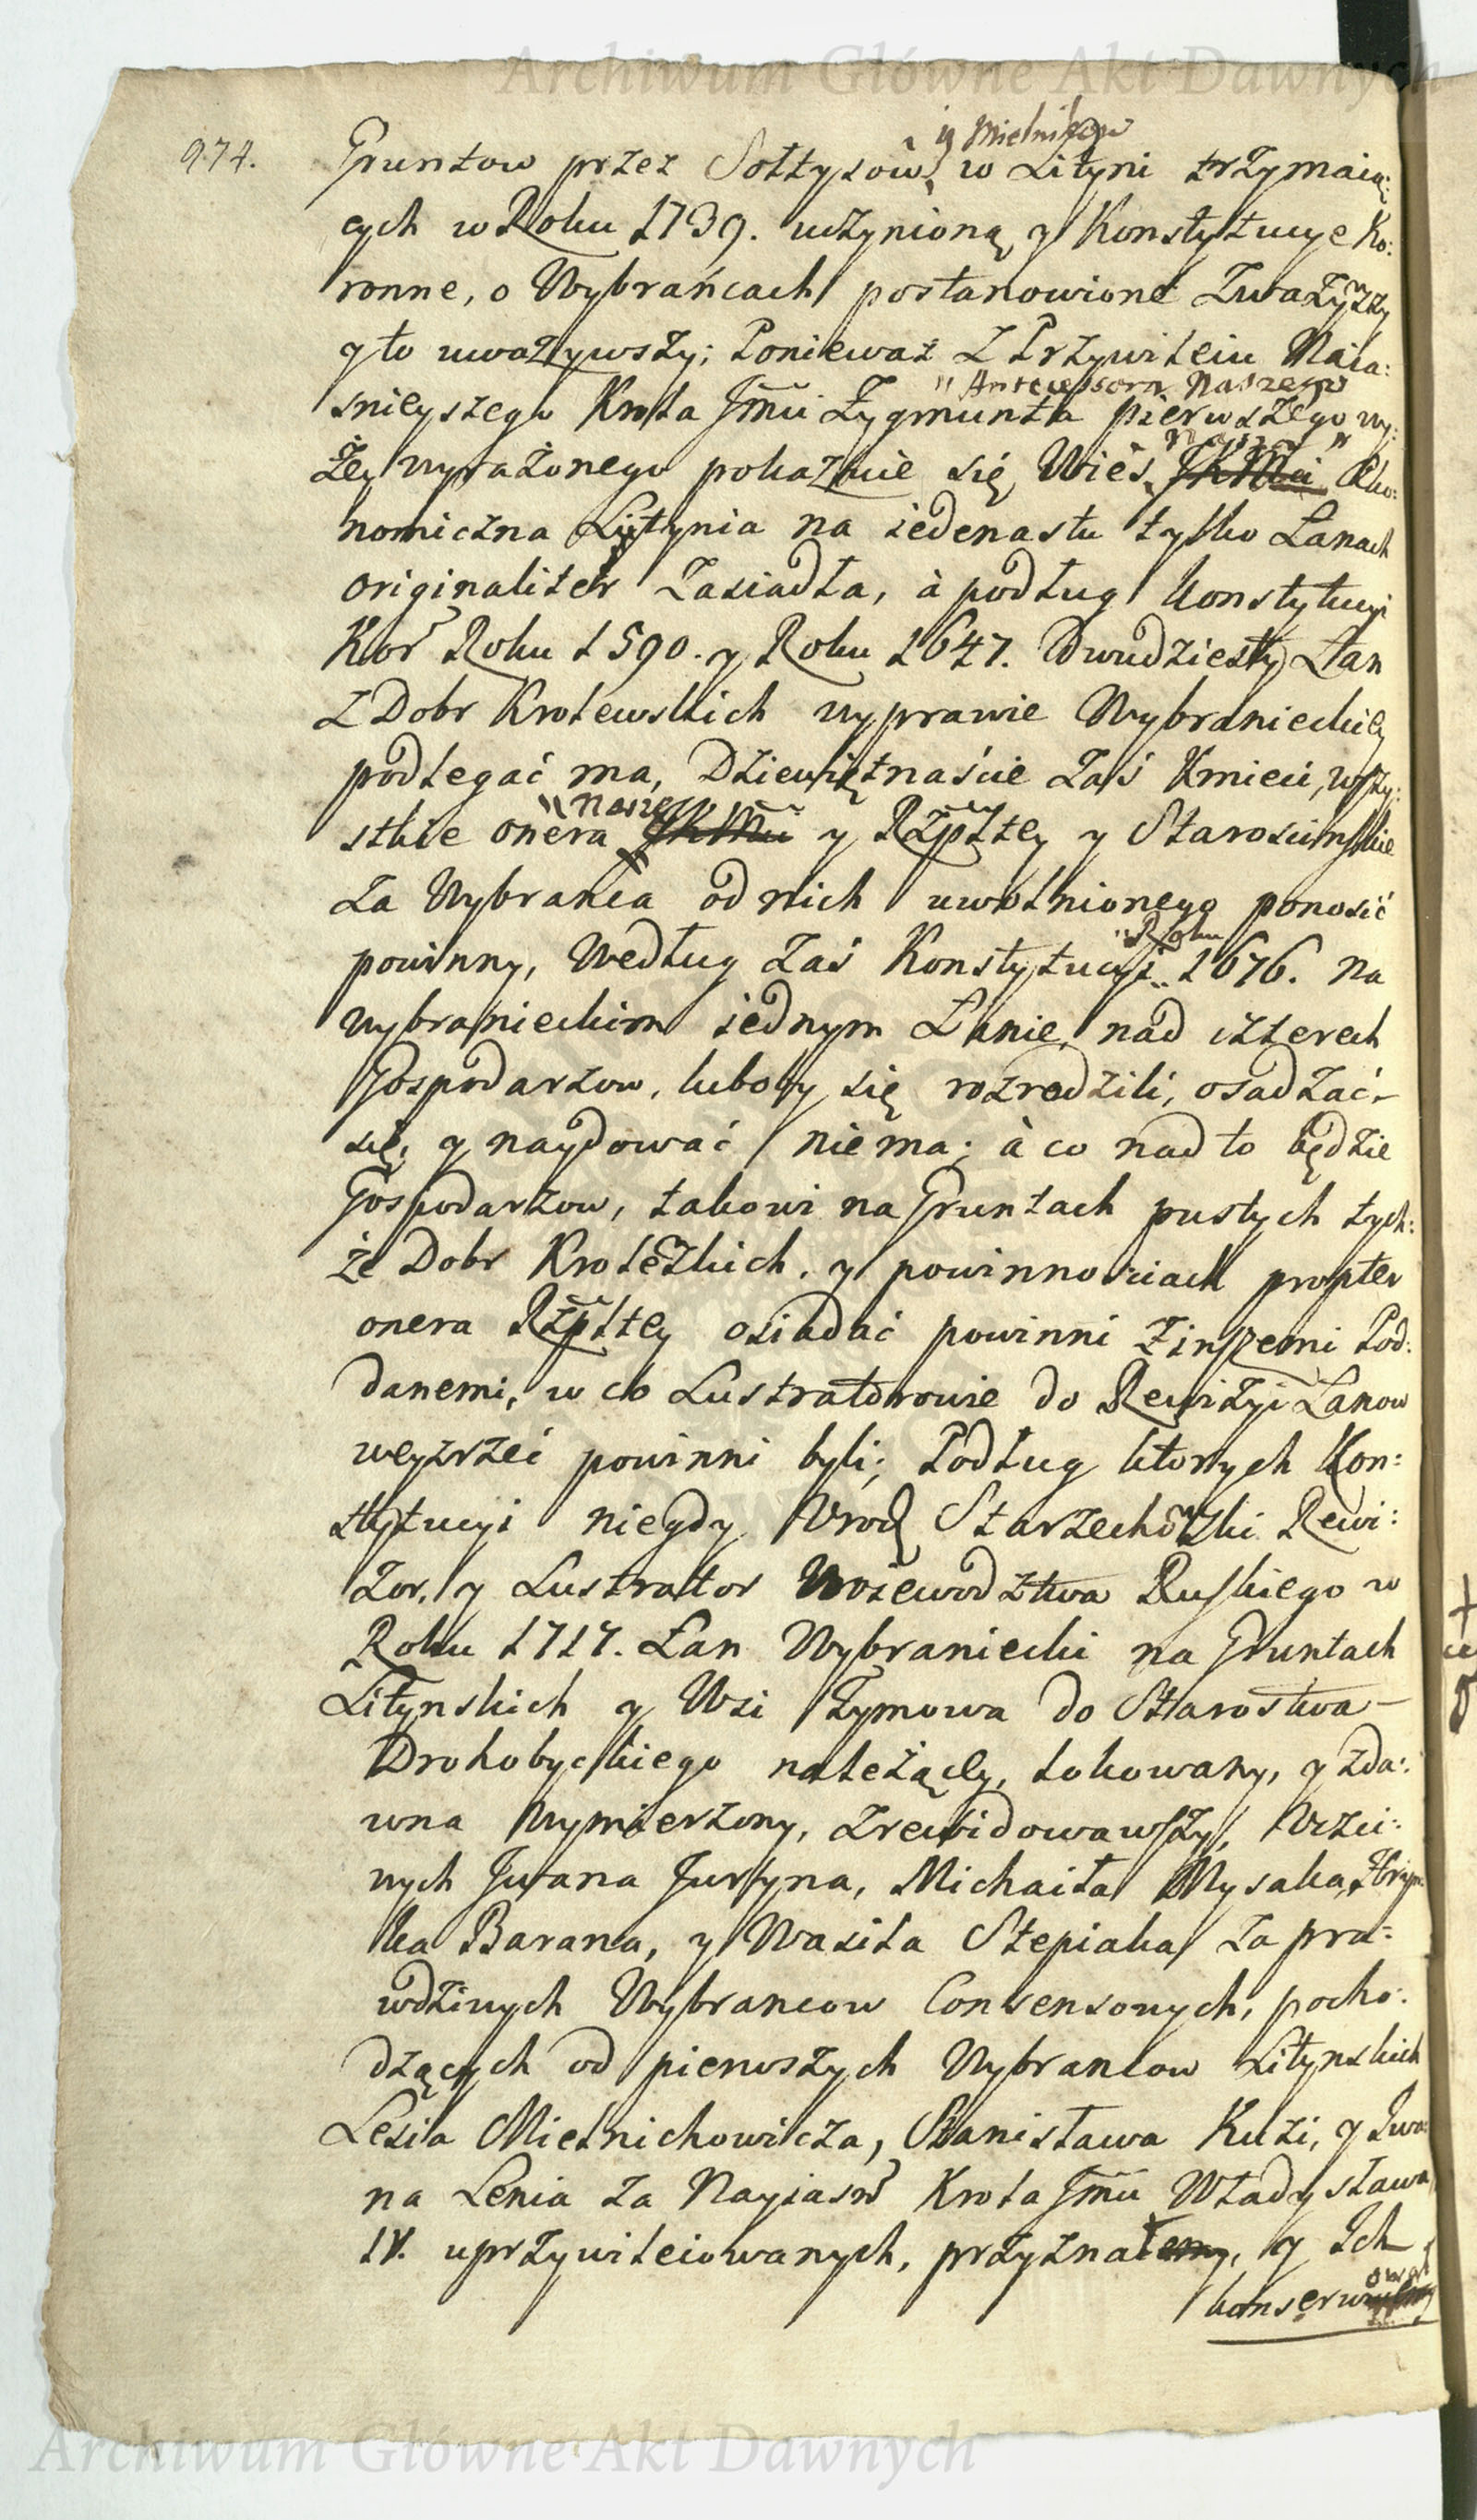 Archiwum Główne Akt Dawnych
974.
y Mielnikow
Gruntow przez Sołtysow, w Lityni trzymaią:
cych w Roku 1739. uczynioną, y Konstytucye Ko:
ronne, o Wybrańcach postanowione zważywszy
y to uważywszy; Ponieważ z Przywileiu Naia:
" Antecessora Naszego
snieyszego Krola Jmci Zygmunta pierwszego wy:
Naszą "
żey wyrażonego pokazuie się, Wieś JKMci Eko:
nomiczna Litynia na iedenastu tylko Łanach
originaliter zasiadła, à podług Konstytucyi
Kor Roku 1590. y Roku 1647. Dwudziesty Łan
z Dobr Krolewskich wyprawie Wybranieckiey
podlegać ma, Dziewiętnaście zaś Kmieci, wszy:
" nasze
stkie onera JKMci y Rzpltey y Starościnskie
za Wybrańca od nich uwolnionego ponosić
" Roku
powinny, Według zaś Konstytucyi 1676. na
wybranieckim iednym Łanie, nad czterech
Gospodarzow, luboby się rozrodzili, osadzać
się, y naydować nie ma; à co nad to będzie
Gospodarzow, takowi na Gruntach pustych tych:
że Dobr Krolewskich, y powinnościach propter
onera Rzpltey osiadać powinni Zinszemi Pod:
danemi, w co Lustratorowie do Rewizyi Łanow
weyrzeć powinni byli; Podług ktorych Kon:
stytucyi niegdy Urod Starzechowski Rewi:
zor, y Lustrator Woiewodztwa Ruskiego w
Roku 1717. Łan Wybraniecki na Gruntach
Lityńskich y Wsi Łymowa do Starostwa
Drohobyckiego należącey, lokowany, y zda:
wna wymierzony, zrewidowawszy, Uczci:
wych Iwana Juryna, Michaiła Mysaka, Hryn
ka Barana, y Wasila Stepiaka za pra:
wdziwych Wybrancow Consensowych, pocho:
dzących od pierwszych Wybrancow Lityńskich
Lesia Mielnichowicza, Stanisława Kuzi, y Iwa:
na Lenia za Nayiasń Krola Jmci Władysława
IV. uprzywileiowanych, przyznał, y Ich
konserwował
Archiwum Główne Akt Dawnych